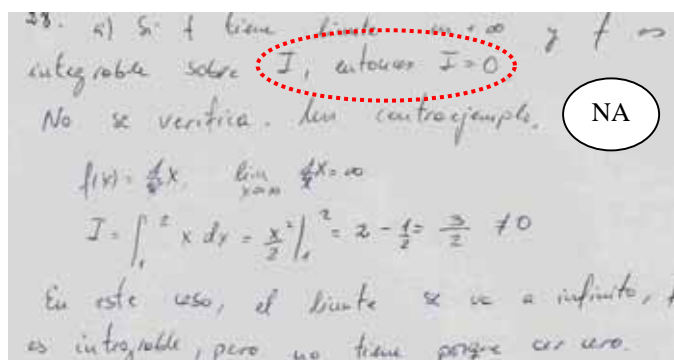 28. a) Si f tiene límite en +∞ y f es
integrable sobre I, entonces I=0
No se verifica. Un contraejemplo.
NA
f(x) = x, lim x = ∞
I = ∫₁² x dx = x²/2 |₁² = 2 - 1/2 = 3/2 ≠ 0
En este caso, el límite se va a infinito, f
es integrable, pero no tiene porque ser cero.